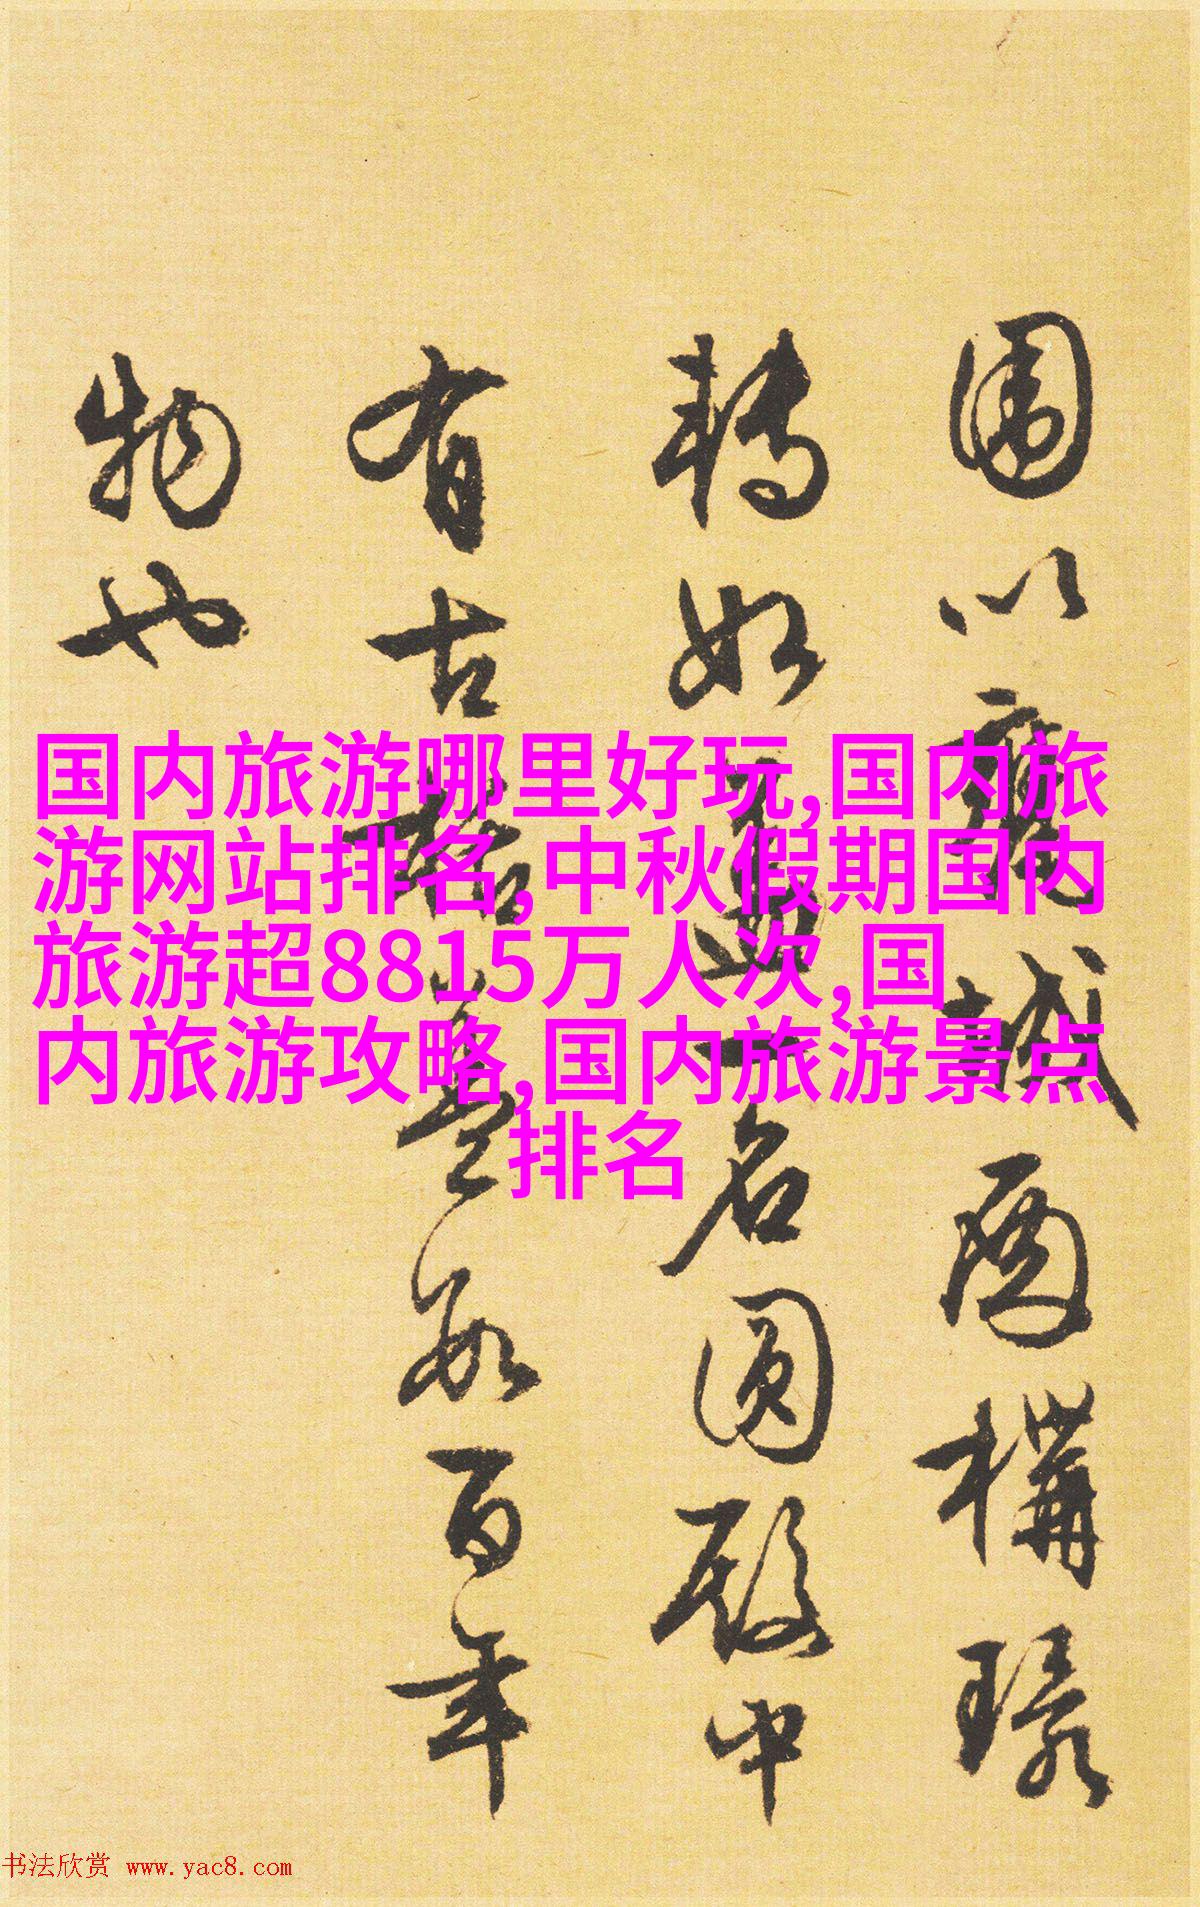 国内旅游哪里好玩,国内旅
游网站排名,中秋假期国内
旅游超8815万人次,国
内旅游攻略,国内旅游景点
排名
圍以城構
轉如盖一名圓殿中
有古栝蓋數百年
物也
书法欣赏 www.yac8.com